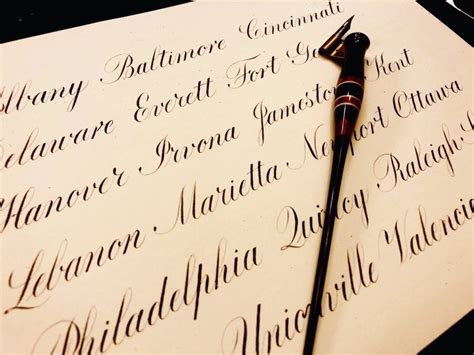 Albany Baltimore Cincinnati
Delaware Everett Fort
Hanover Irvona Jamestown Kent
Lebanon Marietta Newport Ottawa
Philadelphia Quincy Raleigh
Unionville Valencia